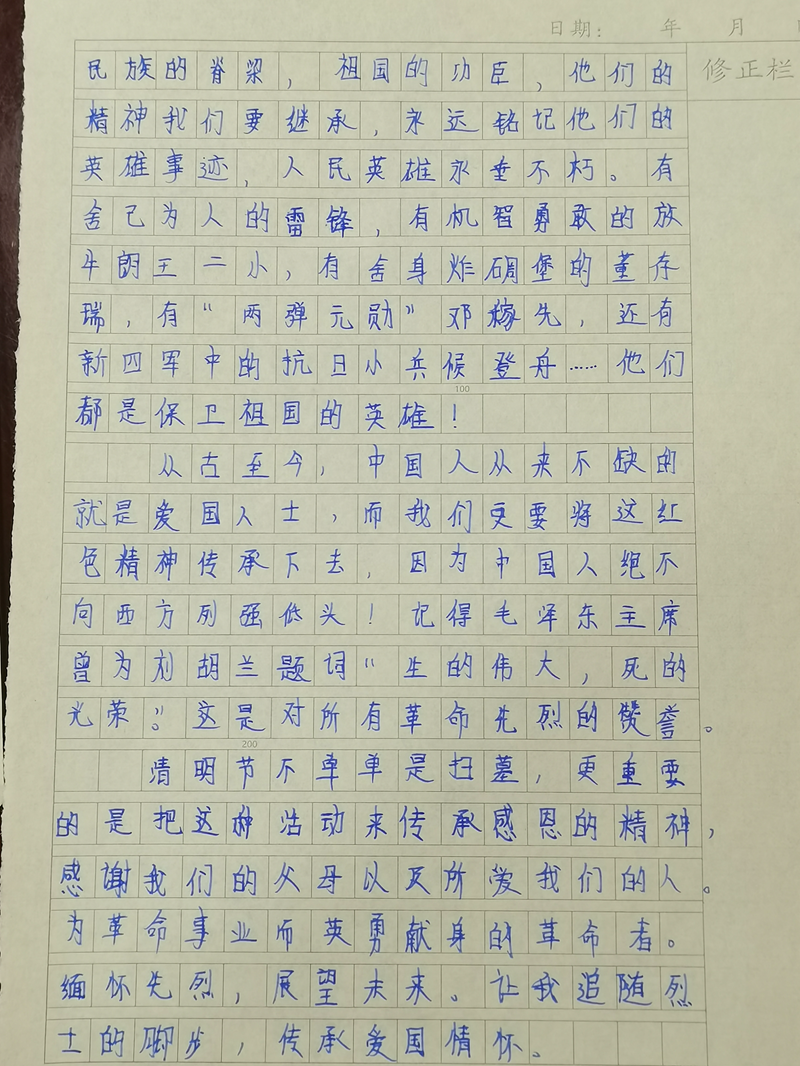 日期： 年 月
修正栏
民族的脊梁，祖国的功臣，他们的
精神我们要继承，永远铭记他们的
英雄事迹，人民英雄永垂不朽。有
舍己为人的雷锋，有机智勇敢的放
牛朗王二小，有舍身炸碉堡的董存
瑞，有“两弹元勋”邓稼先，还有
新四军中的抗日小兵候登舟……他们
100
都是保卫祖国的英雄！
从古至今，中国人从来不缺的
就是爱国人士，而我们更要将这红
色精神传承下去，因为中国人绝不
向西方列强低头！记得毛泽东主席
曾为刘胡兰题词“生的伟大，死的
光荣”。这是对所有革命先烈的赞誉。
200
清明节不单单是扫墓，更重要
的是把这种活动来传承感恩的精神，
感谢我们的父母以及所爱我们的人。
为革命事业而英勇献身的革命者。
缅怀先烈，展望未来。让我追随烈
士的脚步，传承爱国情怀。